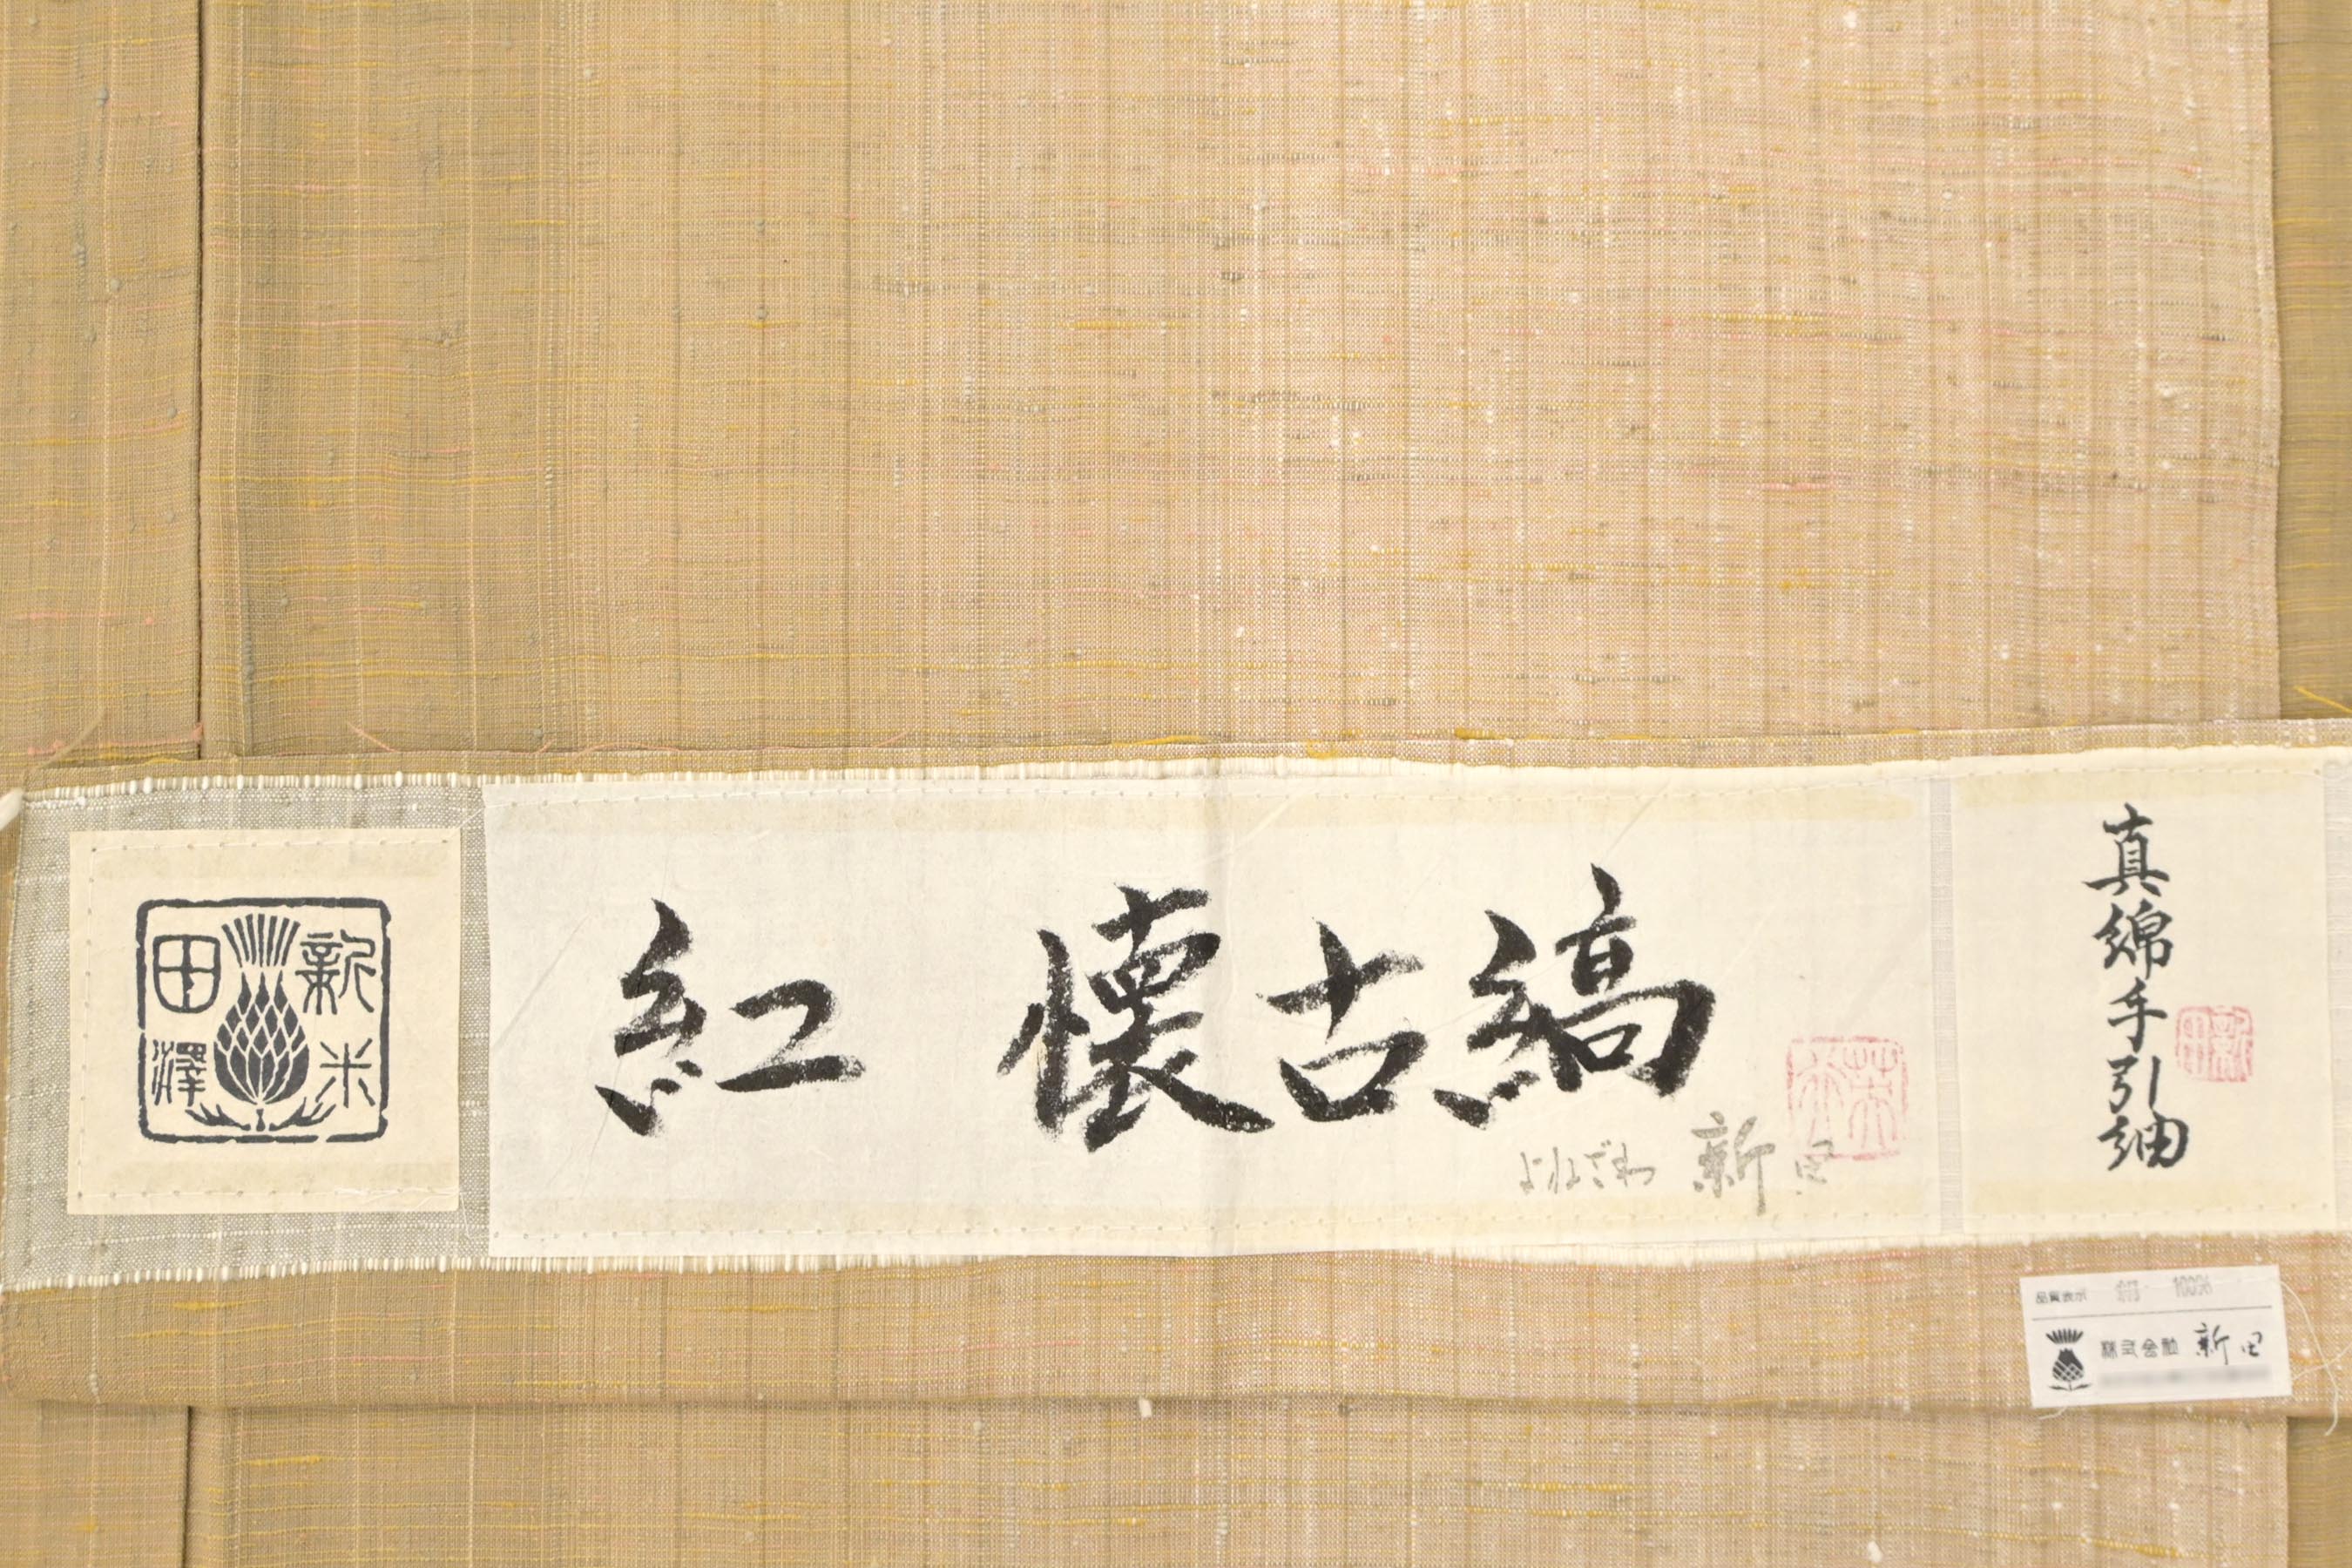 新田
米澤
紅 懐古縞
よねざわ 新田
真綿手引紬
品質表示 絹 100%
株式会社 新田